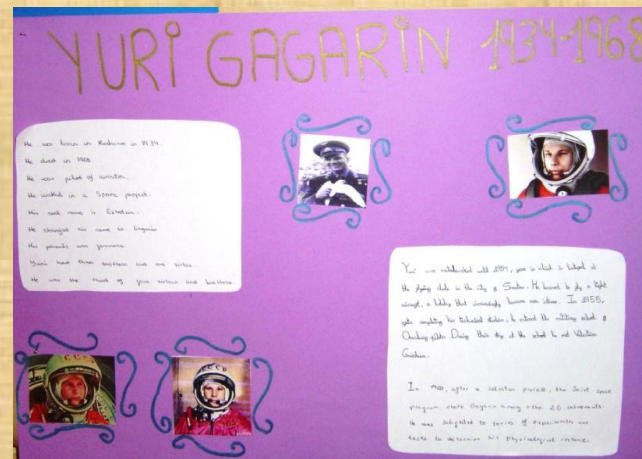 YURI GAGARIN 1934-1968
He was born in in 1934.
He died in 1968.
He was pilot of aviation.
He worked in a Space project.
His real name is
He changed his name to
His parents was
Yuri had three brothers and one sister.
He was the third of four sisters and brothers.
CCCP
CCCP
Yuri was until 1954, year in which he at
the flying club in the city of He learned to fly a light
aircraft, a hobby that increasingly became more In 1955,
after completing his technical studies, he entered the military school of
pilots During their stay at the school he met Valentina
In 1960, after a selection process, the Soviet space
program chose Gagarin among other 20
He was subjected to series of experiments and
tests to determine his physiological